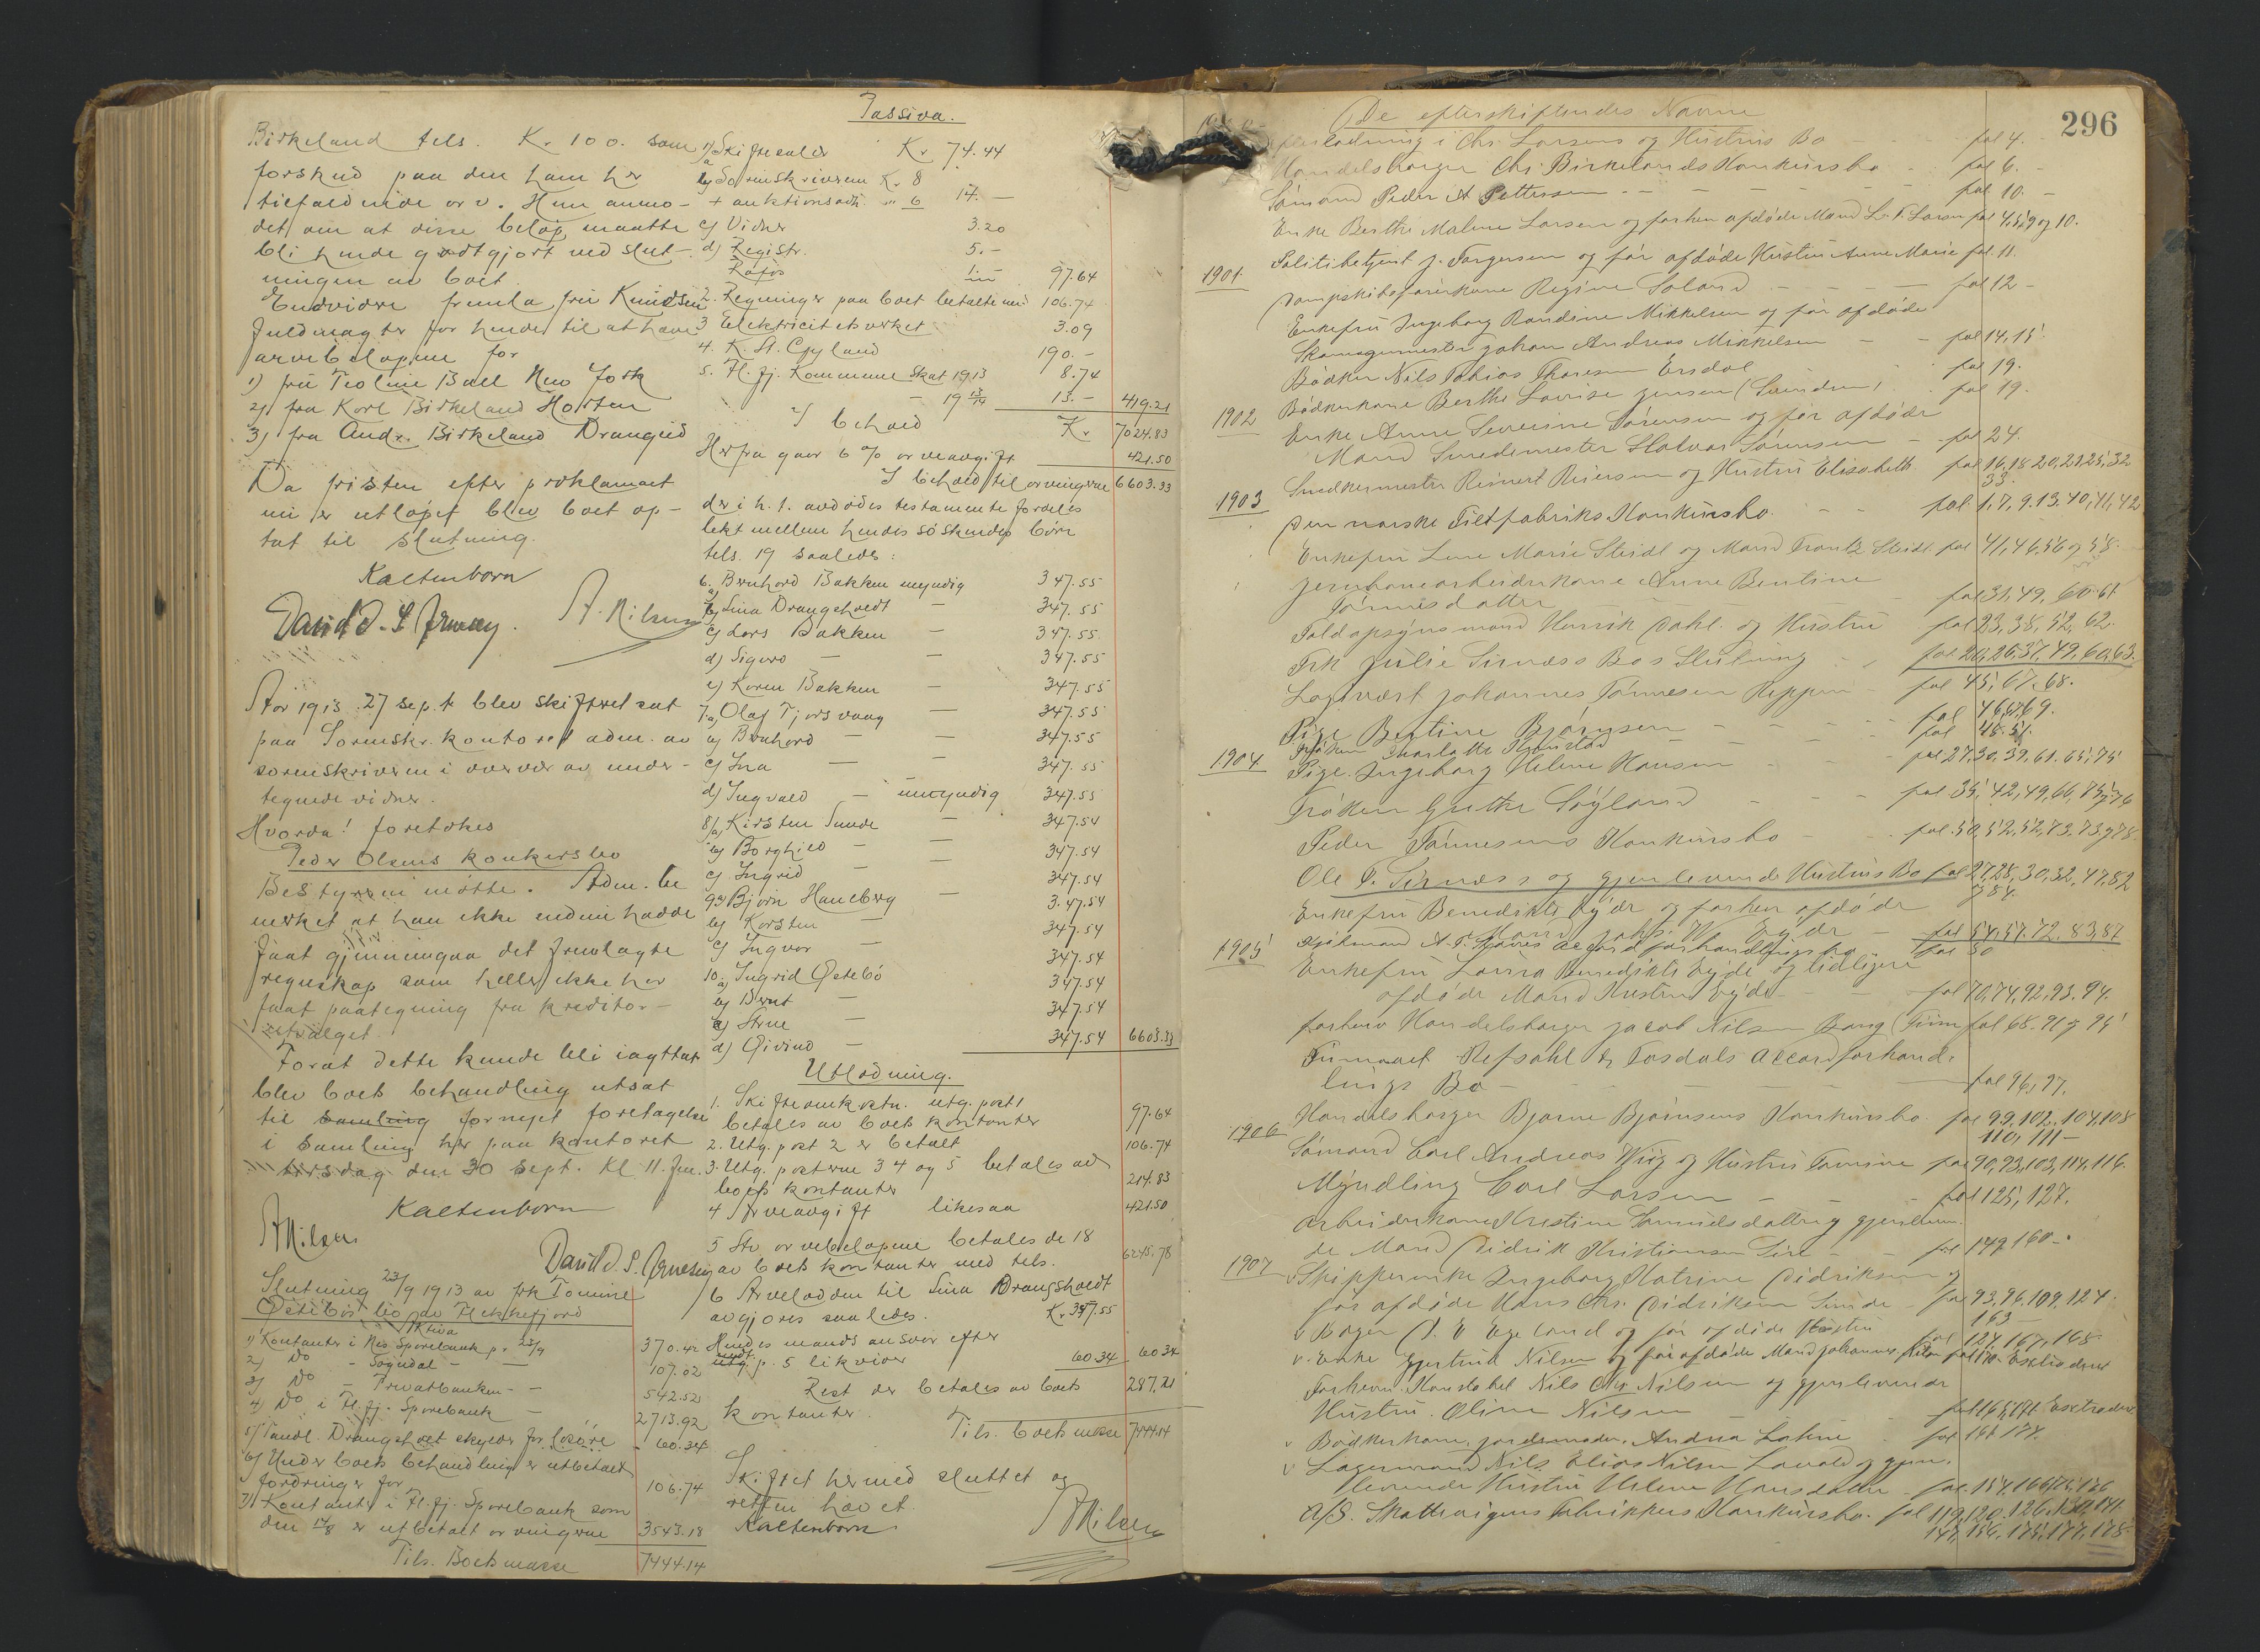 Birkeland tels. Kr 100. som
forskud paa den ham her
tilfaldende arv. Hun anmo-
det om at disse beløp maatte
bli hende godtgjort ved slut-
ningen av boet.
Endvidere fremla fru Knudsen
fuldmagter for hende til at hæve
arvebeløpene for
1) fru Teoline Ball New York
2) fra Karl Birkeland Horten
3) fra Andr. Birkeland Drangeid
Da fristen efter proklamaet
nu er utløpet blev boet op-
tat til slutning.
Kaltenborn
David d. S. Arnesen. A. Nilsen
Aar 1913. 27 sept. blev skifteret sat
paa Sorenskr. kontoret adm. av
sorenskriveren i overvær av under-
tegnede vidner.
Hvorda! foretokes
Peder Olsens konkursbo
Bestyreren møtte. Adm. be
merket at han ikke endnu hadde
faat gjennemgaa det fremlagte
regnskap som heller ikke har
faat paategning fra kreditor-
utvalget.
Forat dette kunde bli iagttat
blev boets behandling utsat
til samling fornyet foretagelse
i samling her paa kontoret
tirsdag den 30 sept. Kl 11. fm.
Kaltenborn
A Nilsen
David d. S. Arnesen
Slutning 23/9 1913 av frk Tomine
Østebøs bo av Flekkefjord
Aktiva
1) Kontanter i Nes Sparebank pr 23/9 370.42
2) Do - Sogndal - 107.02
3) Do - Privatbanken - 542.52
4) Do i Fl.fj. Sparebank - 2713.92
5) Tandl. Drangsholt skyld for løsøre 60.34
6) Under boets behandling er utbetalt
fordringer for 106.74
7) Kontanter i Fl.fj. Sparebank som
den 14/8 er utbetalt arvingerne 3543.18
Tils. Boets masse 7444.14
Passiva.
1) a) Skiftesaler Kr 74.44
b) Sorenskriveren Kr 8
+ auktionsadv. " 6 14. -
c) Vidner 3.20
d) Registr. 5. -
97.64
2. Regninger paa boet betalte med 106.74
3 Elektricitetsverket 3.09
4. K. A. Gyland 190. -
5. Fl.fj. Kommune skat 1913 8.74
- 19 13/14 13. - 419.21
I behold Kr 7024.83
Herfra gaar 6 % arveavgift 421.50
I behold til arvingerne 6603.33
der i h. t. avdødes testamente fordeles
likt mellem hendes søskendes børn
tels. 19 saaledes:
6. a) Bernhard Bakken umyndig 347.55
b) Lina Drangsholt - 347.55
c) Lars Bakken - 347.55
d) Sigurd - - 347.55
e) Karen Bakken - 347.55
7 a) Olaf Tjorsvaag - 347.55
b) Bernhard - - 347.55
c) Ina - - 347.55
d) Ingvald - umyndig 347.55
8/a) Kirsten Sunde - 347.54
b) Borghild - - 347.54
c) Ingrid - - 347.54
9 a) Bjørn Haneberg - 347.54
b) Karsten - 347.54
c) Ingvar - 347.54
10 a) Ingrid Østebö 347.54
b) Bernt - 347.54
c) Stine - 347.54 6603.33
d) Øivind -
Utlodning.
1. Skifteomkostn. utg. post 1
betales av boets kontanter 97.64
2. Utg. post 2 er betalt 106.74
3. Utg. posterne 3 4 og 5 betales av
boets kontanter 214.83
4 Arveavgift likesaa 421.50
5 Av arvebeløpene betales de 18
av boets kontanter med tels. 6245.78
6 Arvelodden til Lina Drangsholdt
avgjøres saaledes. Kr 347.55
Hendes mands ansvar efter
indt. p. 5 likvider 60.34 60 34
Rest der betales av boets 287.21
kontanter.
Tils. boets masse 7444.14
Skiftet hermed sluttet og
retten hævet.
Kaltenborn A Nilsen
296
De efterskiftendes Navne
efterlodning i Chr. Larsens og Hustrus Bo fol 4.
Handelsborger Chr. Birkelands Konkursbo fol 6. -
Sømand Peder A Pettersen - fol 10. -
Enke Berthe Malene Larsen og forhen afdøde Mand L. T. Larsen fol 4,5,9 og 10.
Politibetjent J. Torgersen og før afdøde Hustru Anne Marie fol 11.
1901. Dampskibsførerkone Regine Soland fol 12 -
Enkefru Ingeborg Randine Mikkelsen og før afdøde
Skomagermester Johan Andreas Mikkelsen - fol 14, 15.
Bødker Nils Tobias Thoresen Ersdal fol 19.
1902 Bødkerkone Berthe Lovise Jensen (Svindien) fol 19.
Enke Anne Severine Sørensen og før afdøde
Mand Smedemester Halvar Sørensen - fol 24.
Snedkermester Reinert Reiersen og Hustru Elisabeth fol 16,18 20,21 25,32
33.
1903 Den norske Filtfabriks Konkursbo. fol. 1, 7, 9. 13. 40, 41, 42
Enkefru Lene Marie Steidl og Mand Frantz Steidl fol 41, 46, 56 og 58.
Jernbanearbeiderkone Anne Bentine
Tønnesdatter fol 31, 49, 60. 61
Toldopsynsmand Henrik Dahl. og Hustru fol 23, 38, 52, 62.
Frk Julie Sirnæss Bos Slutning fol 20, 26, 37, 49, 60, 63.
Logsvært Johannes Tønnesen Reppen fol 45, 67. 68.
Pige Bertine Bjørnsen fol 46, 69.
Frøken fol 48. 51.
1904 Pige. Ingeborg Helene Hansen fol 27, 30, 39, 61. 65, 75
Frøken Grethe Søyland fol 35, 42, 49, 66, 75, 76
Peder Tønnesens Konkursbo fol. 50, 52, 52, 73, 73 og 78.
Ole T. Sirnæss og gjenlevende Hustrus Bo fol 27, 28, 30, 32, 47, 82
og 84.
Enkefru Benedikte Eyde og forhen afdøde
Mand Eyde - fol 54, 57. 72. 83, 87
1905 A. T. Accordforhandlingsbo fol 80
Enkefru Lovisa Benedikte Eyde og tidligere
afdøde Mand Eyde fol 70, 74, 92, 93. 94.
forhenv Handelsborger Jacob Nilsen Bang fol 68. 91 og 95
Firmaet Refsahl & Tosdals Accordforhand.
lings Bo - fol 96, 97.
Handelsborger Bjarne Bjørnsens Konkursbo fol 99, 102, 104, 108
110, 111 -
1906 Sømand Carl Andreas Wiig og Hustru Tomine fol 90, 93, 103, 114, 116.
Myndling Carl Larsen fol 125, 127.
Arbeiderkone Kristine Samuelsdatter og gjenleven.
de Mand Didrik Kristiansen fol 149, 160 -
1907 v Skipperenke Ingeborg Katrine Didriksen og
før afdøde Hans Chr. Didriksen Sunde fol 93, 96, 109, 124.
163 -
v Bager P. E Egeland og før afdøde Hustru fol 127, 167, 168
v. Enke Gjertrud Nilsen og før afdøde Mand Johannes Nilsen fol 170. Extraderet
Forhenv. Konstabel Nils Chr. Nilsen og gjenlevende
Hustru. Oline Nilsen
v Bødkerkone, Jordemoder, Andrea
v Lagermand Nils Elias Nilsen Lavold og gjen.
levende Hustru Helene Hansdatter
A/S. Skotturigens Fabrikkers Konkursbo. fol 119, 120. 126,